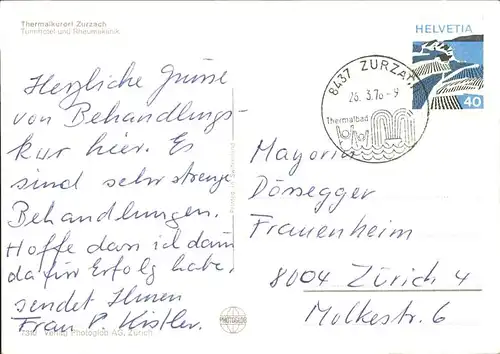 Thermalkurort Zurzach
Turmhotel und Rheumaklinik
Herzliche Grüsse
von Behandlungs-
kur hier. Es
sind sehr strenge
Behandlungen.
Hoffe dass ich dann
dafür Erfolg habe,
sendet Ihnen
Frau P. Kistler.
Verlag Photoglob AG, Zürich
Printed in Switzerland
PHOTOGLOB
HELVETIA
40
8437 ZURZACH
26. 3.76-9
Thermalbad
Mayorin
Dössegger
Frauenheim
8004 Zürich 4
Molkestr. 6